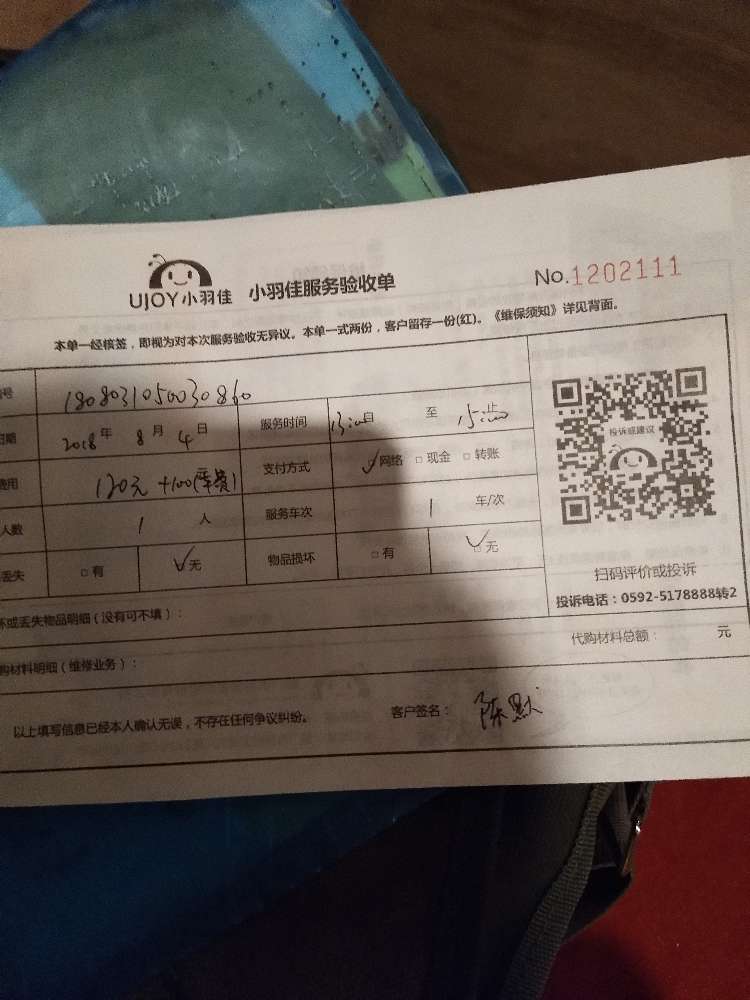 UJOY小羽佳 小羽佳服务验收单 No.1202111
本单一经核签，即视为对本次服务验收无异议。本单一式两份，客户留存一份(红)。《维保须知》详见背面。
号 1808031050030860
日期 2018年 8月 4日 服务时间 13:00自 至 15:00止
费用 120元 +100(车费) 支付方式 ✓网络 □现金 □转账
人数 1 人 服务车次 1 车/次
丢失 □有 ✓无 物品损坏 □有 ✓无
投诉或建议
扫码评价或投诉
投诉电话：0592-5178888转2
坏或丢失物品明细（没有可不填）：
购材料明细（维修业务）： 代购材料总额： 元
以上填写信息已经本人确认无误，不存在任何争议纠纷。 客户签名： 陈默